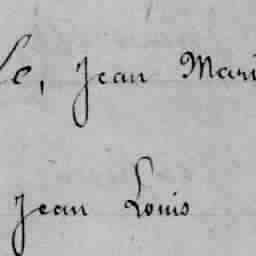 le, Jean Mari
Jean Louis